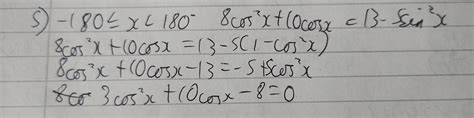 5) -180 ≤ x < 180° 8cos²x+10cosx = 13-5sin²x
8cos²x+10cosx = 13-5(1-cos²x)
8cos²x+10cosx-13=-5+5cos²x
3cos²x+10cosx-8=0